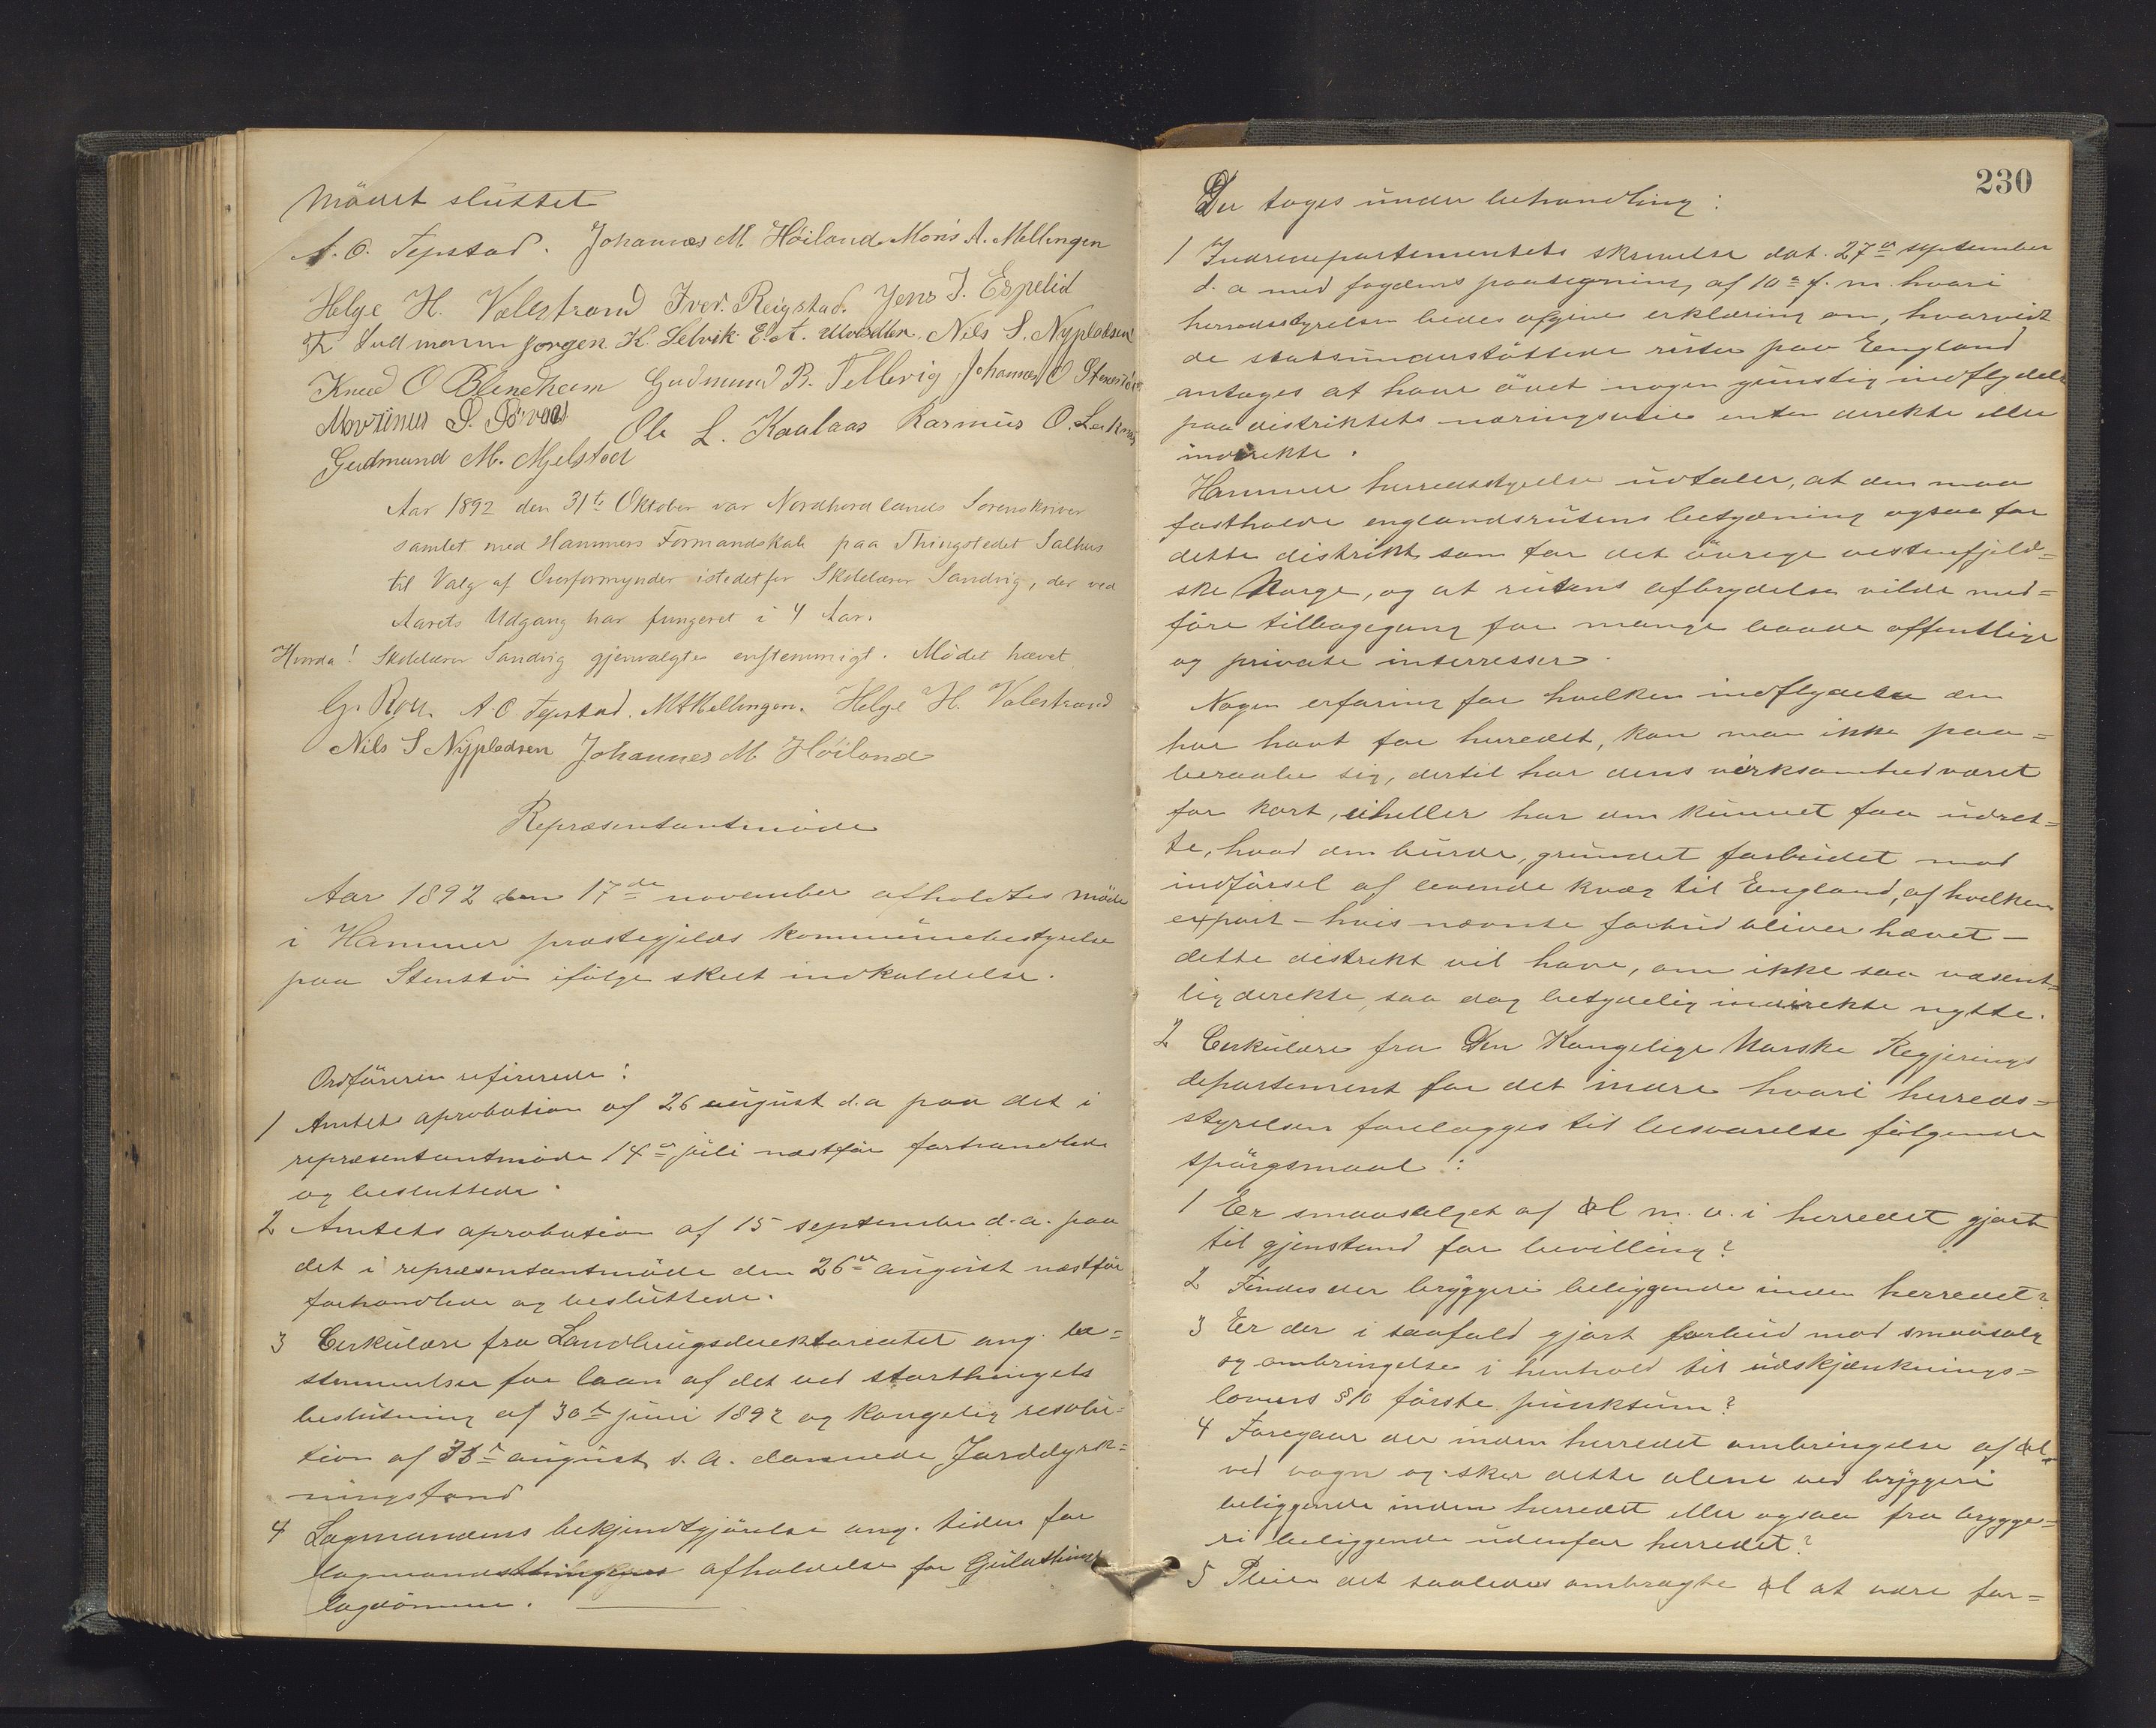 Mödet sluttet
A. O. Tepstad. Johannes M. Höiland Mons A. Mellingen
Helge H. Valestrand Iver. Reigstad. Jens J. Espelid
Jørgen K. Selvik E. A. Nils S. Nypladsen
Knud O Blindheim Gudmund B. Tellevig Johannes O Stensiö
Ole L. Kaalaas Rasmus O. Leknæs
Gudmund M. Mjelstad
Aar 1892 den 31te Oktober var Nordhordlands Sorenskriver
samlet med Hammers Formandskab paa Thingstedet Salhus
til Valg af Overformynder istedetfor Skolelærer Sandvig, der ved
Aarets Udgang har fungeret i 4 Aar.
Hvorda! Skolelærer Sandvig gjenvalgtes enstemmigt. Mødet hævet
G. A. O Tepstad. M A Mellingen. Helge H. Valestrand
Nils S Nypladsen Johannes M. Höiland
Repræsentantmöde
Aar 1892 den 17de november afholdtes möde
i Hammer præstegjelds kommunebestyrelse
paa Stensiö ifölge skeet indkaldelse.
Ordföreren refererede:
1 Amtets aprobation af 26 august d.a paa det i
repræsentantmöde 14de juli næstför forhandlede
og besluttede.
2 Amtets aprobation af 15 september d.a. paa
det i repræsentantmöde den 26de august næstför
forhandlede og besluttede.
3 Cirkulære fra Landbrugsdirektoriatet ang. be=
stemmelser for laan af det ved storthingets
beslutning af 30te juni 1892 og kongelig resolu=
tion af 31te august s. a. dannede Jorddyrk=
ningsfond
4 Lagmandens bekjendtgjörelse ang. tiden for
lagmandsthingenes afholdelse for Gulathings
lagdömme.
230
Der toges under behandling:
1 Indredepartementets skrivelse dat. 27de september
d. a med fogdens paategning af 10de f. m. hvori
herredsstyrelsen bedes afgive erklæring om, hvorvidt
de statsunderstöttede ruter paa England
antages at have övet nogen gunstig indflydelse
paa distriktets næringsveie enten direkte eller
indirekte.
Hammer herredsstyrelse udtaler, at den maa
fastholde englandsrutens betydning ogsaa for
dette distrikt som for det övrige vestenfjeld=
ske Norge, og at rutens afbrydelse vilde med=
före tilbagegang for mange baade offentlige
og private interresser.
Nogen erfaring for hvilken indflydelse den
har havt for herredet, kan man ikke paa=
beraabe sig, dertil har dens virksomhed været
for kort, iheller har den kunnet faa udret=
te, hvad den burde, grundet forbudet mod
indförsel af levende kvæg til England, af hvilken
export – hvis nævnte forbud bliver hævet –
dette distrikt vil have, om ikke saa væsent=
lig direkte, saa dog betydelig indirekte nytte.
2 Cirkulære fra Den Kongelige Norske Regjerings
departement for det indre hvori herreds=
styrelsen forelægges til besvarelse fölgende
spörgsmaal:
1 Er smaasalget af öl m. v. i herredet gjort
til gjenstand for bevilling?
2 Findes der bryggeri beliggende inden herredet?
3 Er der i saafald gjort forbud mod smaasalg
og ombringelse i henhold til udskjænknings=
lovens § 10 förste punktum?
4 Foregaar der inden herredet ombringelse af öl
ved vogn og sker dette alene ved bryggeri
beliggende inden herredet eller ogsaa fra brygge=
ri beliggende udenfor herredet?
5 Pleier det saaledes ombragte öl at være for=